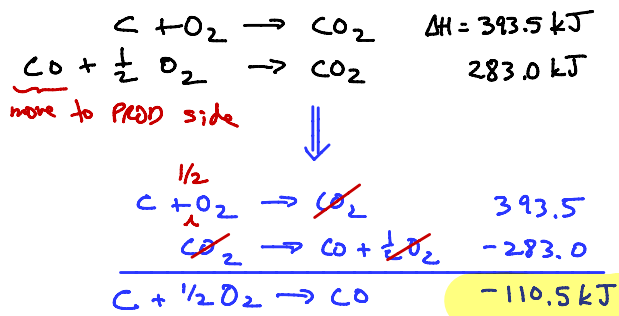 C + O₂ → CO₂ ΔH = 393.5 kJ
CO + 1/2 O₂ → CO₂ 283.0 kJ
move to PROD side
⇓
1/2
C + O₂ → CO₂ 393.5
CO₂ → CO + 1/2 O₂ -283.0
C + 1/2 O₂ → CO -110.5 kJ